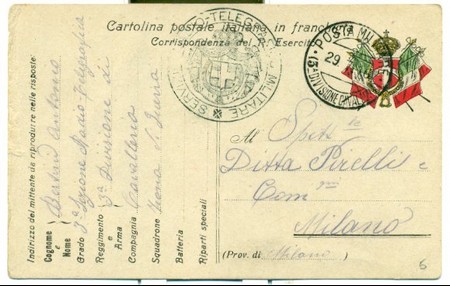 Cartolina postale italiana in franchigia
Corrispondenza del R. Esercito
TELEGR MILITARE SERVIZI
POSTA MIL
3ª DIVISIONE CAVALL
29
Indirizzo del mittente da riprodurre nelle risposte:
Cognome e Nome Antonio
Grado 3ª Sezione Radio-Telegrafia
Reggimento e Arma 3ª Divisione di
Compagnia Cavalleria
Squadrone Zona di Guerra
Batteria
Riparti speciali
Al Spett le
Ditta Pirelli e
Com
Milano
(Prov. di Milano)
6